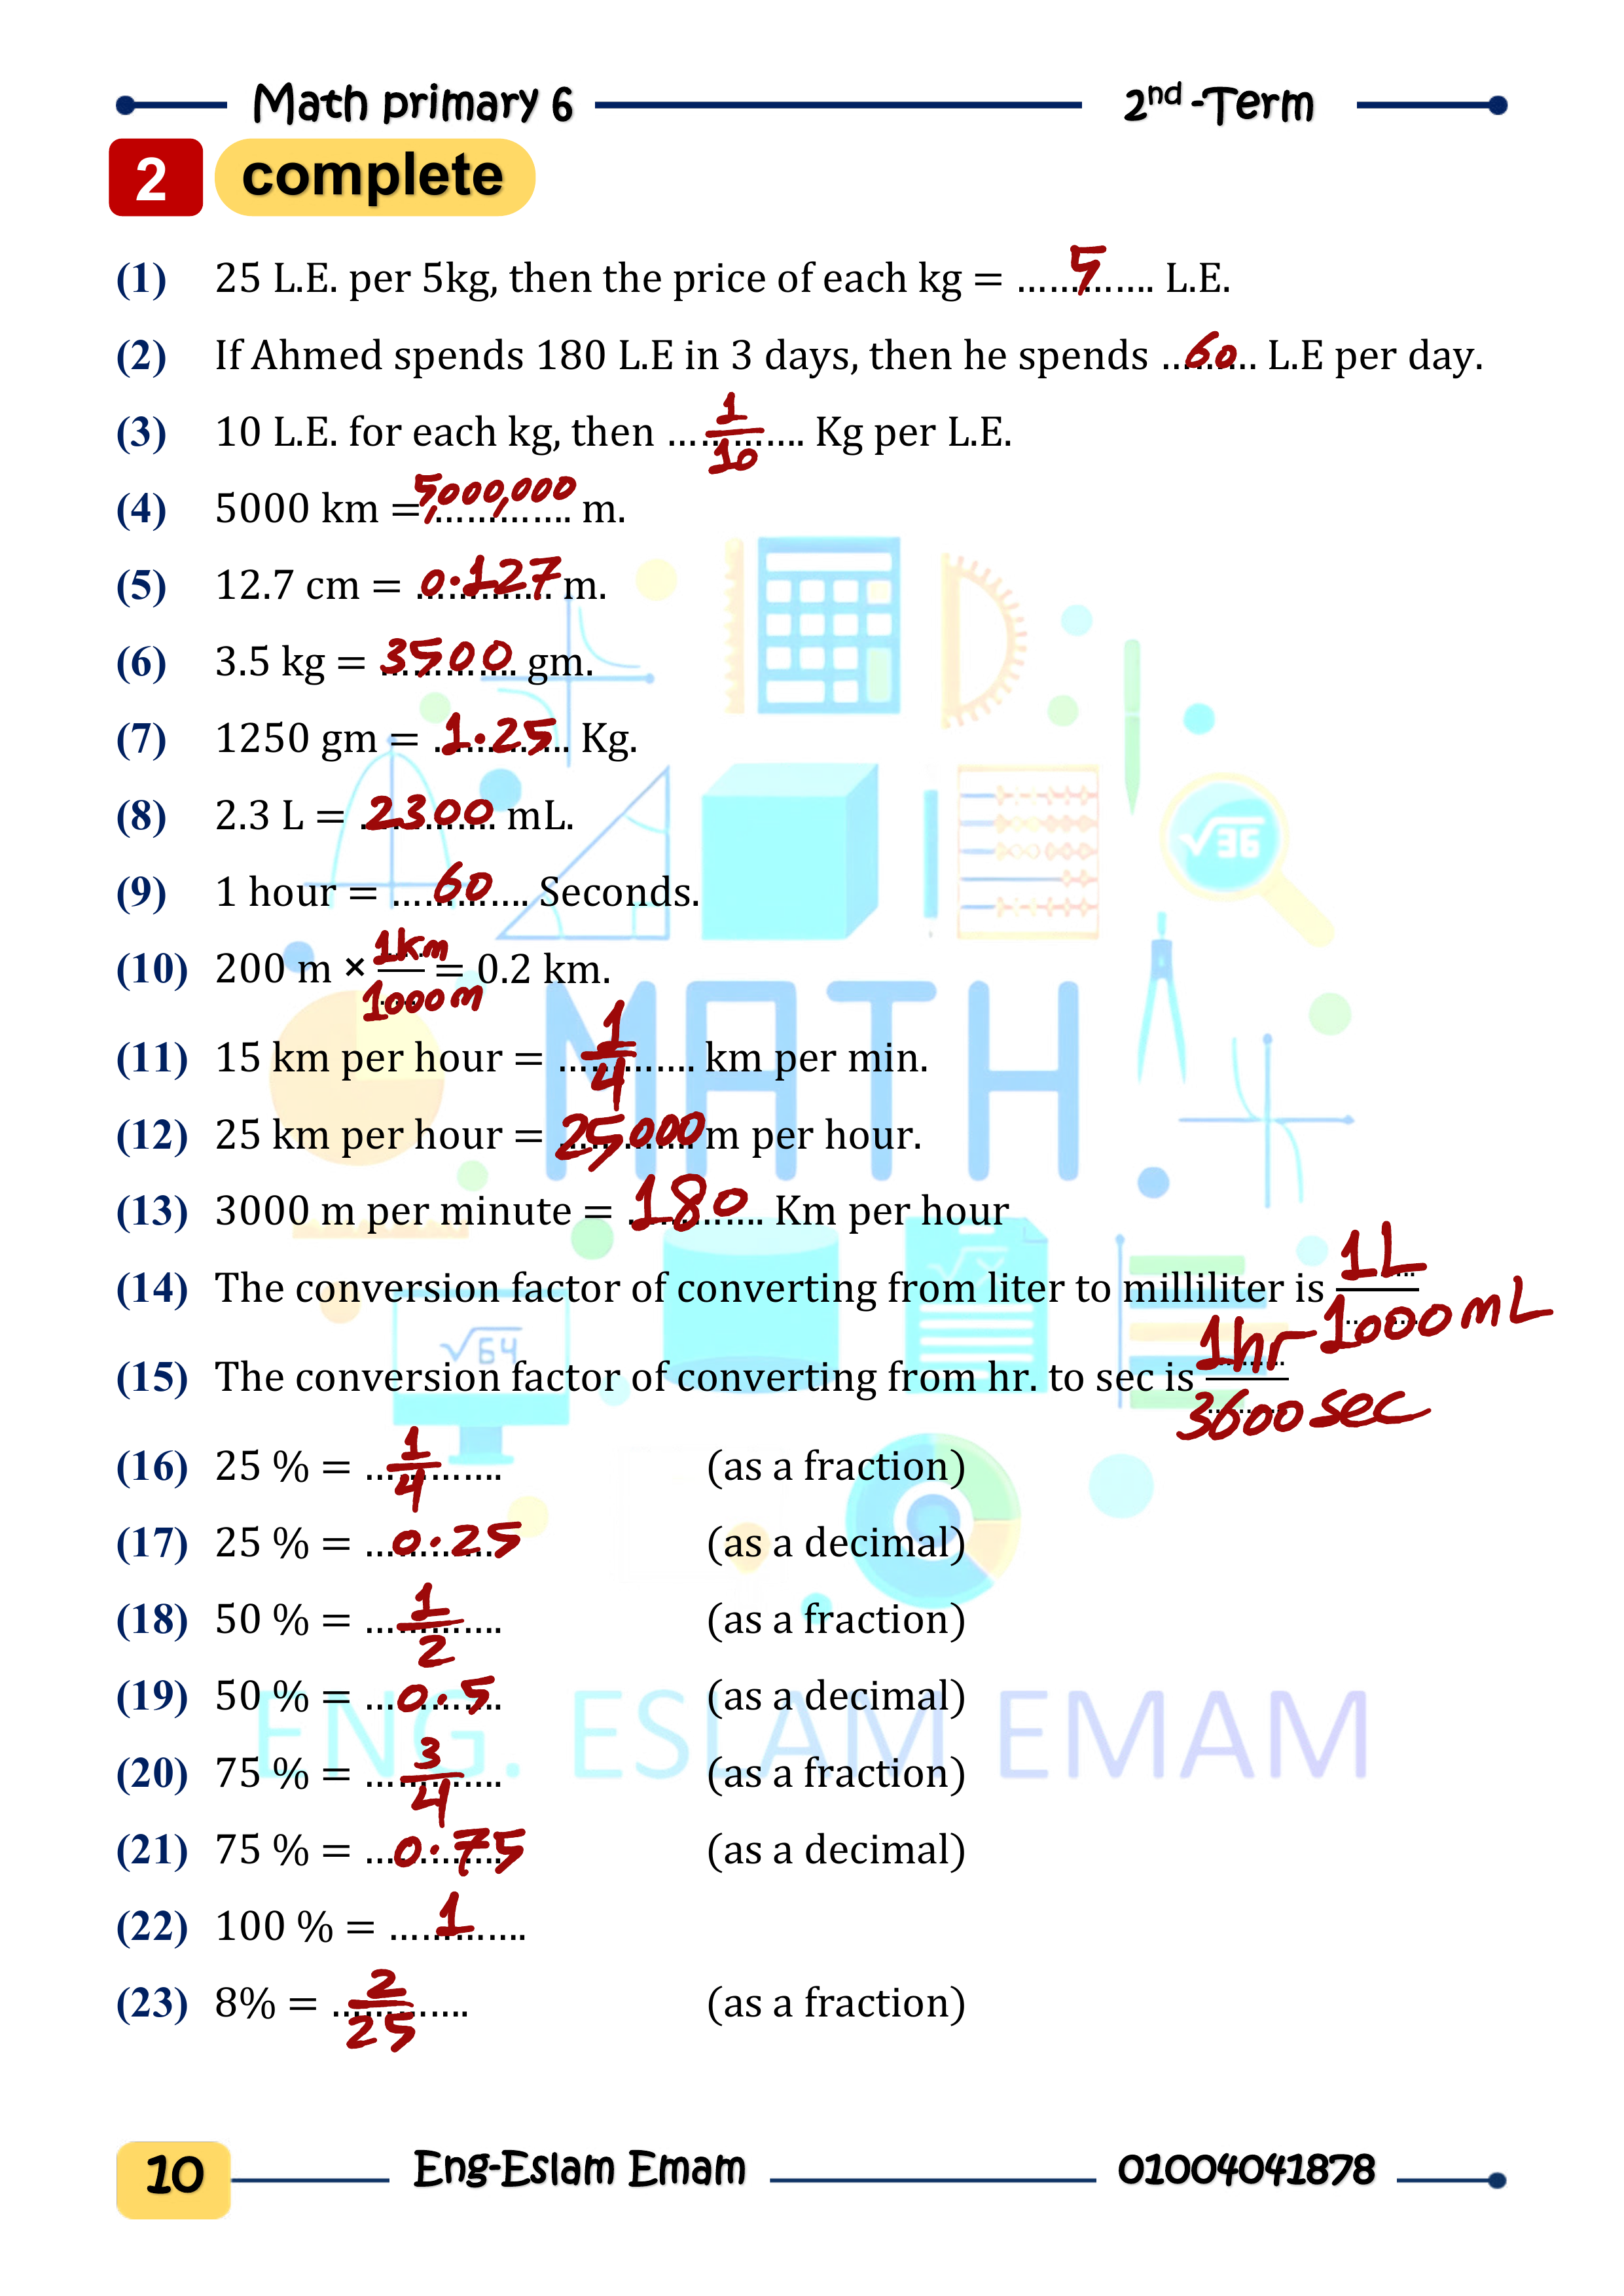 Math primary 6 2nd -Term
2 complete
(1) 25 L.E. per 5kg, then the price of each kg = .....5..... L.E.
(2) If Ahmed spends 180 L.E in 3 days, then he spends ...60... L.E per day.
(3) 10 L.E. for each kg, then .....1/10..... Kg per L.E.
(4) 5000 km = 5,000,000 m.
(5) 12.7 cm = 0.127 m.
(6) 3.5 kg = 3500 gm.
(7) 1250 gm = 1.25 Kg.
(8) 2.3 L = 2300 mL.
(9) 1 hour = .....60..... Seconds.
(10) 200 m × 1km/1000m = 0.2 km.
(11) 15 km per hour = .....1/4..... km per min.
(12) 25 km per hour = 25000 m per hour.
(13) 3000 m per minute = 180 Km per hour
(14) The conversion factor of converting from liter to milliliter is 1L/1000mL
(15) The conversion factor of converting from hr. to sec is 1hr/3600sec
(16) 25 % = .....1/4..... (as a fraction)
(17) 25 % = 0.25 (as a decimal)
(18) 50 % = .....1/2..... (as a fraction)
(19) 50 % = 0.5 (as a decimal)
(20) 75 % = .....3/4..... (as a fraction)
(21) 75 % = 0.75 (as a decimal)
(22) 100 % = .....1.....
(23) 8% = .....2/25..... (as a fraction)
√36
MATH
√64
√x
ENG. ESLAM EMAM
10 Eng-Eslam Emam 01004041878